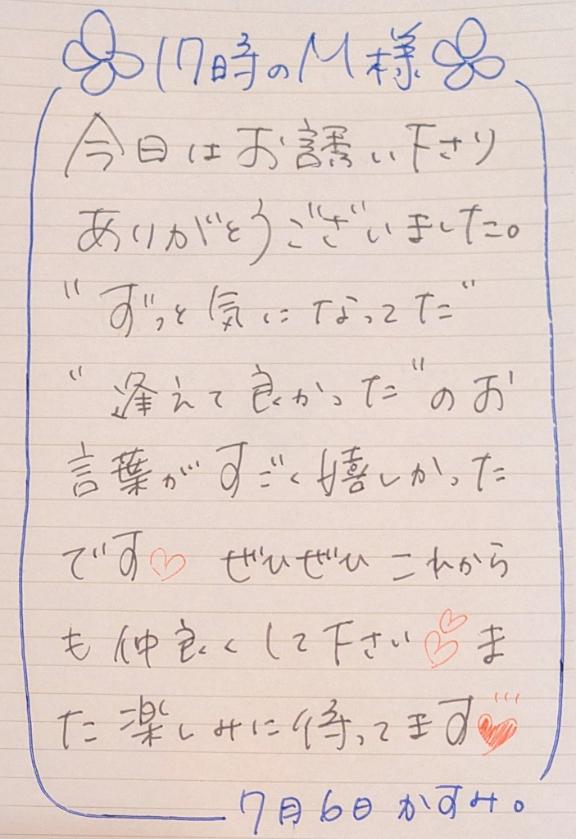 17時のM様
今日はお誘い下さり
ありがとうございました。
"ずっと気になってた"
"逢えて良かった"のお
言葉がすごく嬉しかった
です♡ ぜひぜひこれから
も仲良くして下さい♡♡ま
た楽しみに待ってます♥
7月6日 かすみ。